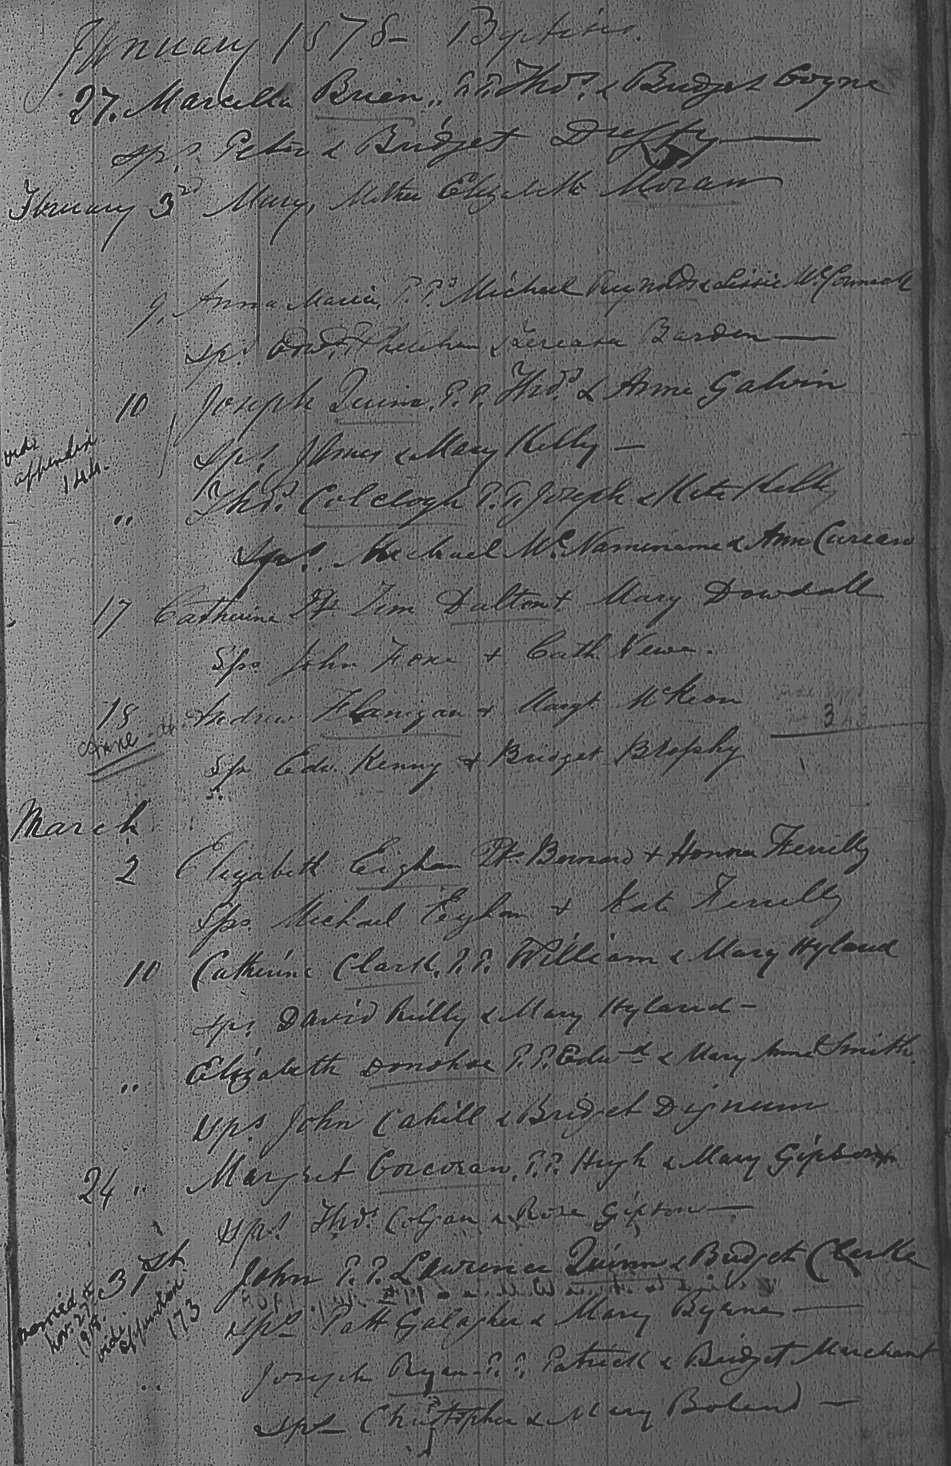 January 1878 Baptisms.
27. Marcella Brien, P.P. Thos. & Bridget Coyne
Sps. Peter & Bridget Duffy
February 3rd Mary, Mother Elizabeth Moran
9, Anna Maria, P.Ps Michael Reynolds & Lissie McCormack
Sps. Edwd. Theresa Barden
10 Joseph Quinn. P.P. Thos. & Anne Galvin
vide appendix 144.
Sps. James & Mary Kelly
" Thos. Colclogh P.P. Joseph & Kate Kelly
Sps. Michael McNamee & Ann Curran
17 Catherine Pts Tim Dalton + Mary Dowdall
Sps John + Cath
18 Andrew Flanigan + Margt McKeon
Anne
3
Sps Edw. Kenny + Bridget Brophy
March
2 Elizabeth Eighan Pts Bernard + Honora Ferrilly
Sps Michael Eighan + Kate Ferrilly
10 Catherine Clark. P.P. William & Mary Hyland
Sps David Reilly & Mary Hyland
" Elizabeth Donohoe P.P. Edwd & Mary Anne Smith.
Sps John Cahill & Bridget Dignum
24 " Margret Corcoran, P.P. Hugh & Mary Gipson
Sps. Thos. Colgan & Rose Gipson
31st John P.P. Lawrence Quinn & Bridget Clarke
married Nov. 1918. vide appendix 173
Sps Patt Galagher & Mary Byrne
" Joseph Ryan P.P. Patrick & Bridget Merchant
Sps Christopher & Mary Boland